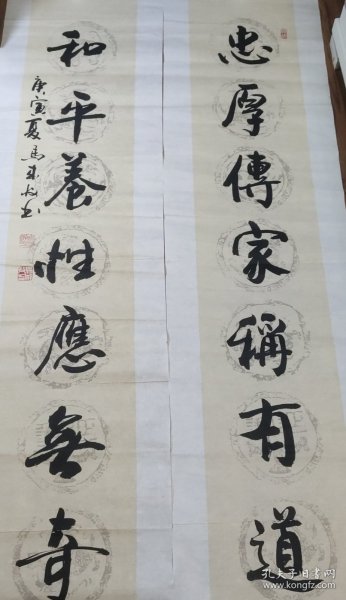 忠厚傳家稱有道
和平養性應無奇
庚寅夏馬
书
孔夫子旧书网